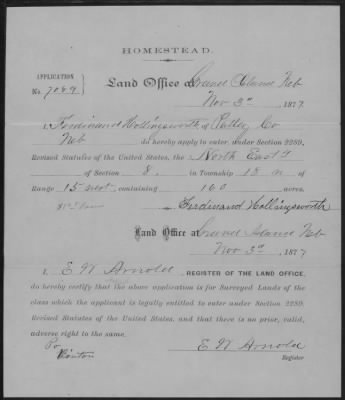 HOMESTEAD.
APPLICATION
No. 7069
Land Office at Grand Island Neb
Nov 3rd, 1877.
I, Ferdinand Hollingsworth of Valley Co
Neb do hereby apply to enter, under Section 2289,
Revised Statutes of the United States, the North East 4
of Section 8, in Township 18 N of
Range 15 West, containing 160 acres.
Ferdinand Hollingsworth
Land Office at Grand Island Neb
Nov 3rd 1877
I, E W Arnold, REGISTER OF THE LAND OFFICE,
do hereby certify that the above application is for Surveyed Lands of the
class which the applicant is legally entitled to enter under Section 2289,
Revised Statutes of the United States, and that there is no prior, valid,
adverse right to the same.
Po
E W Arnold
Register